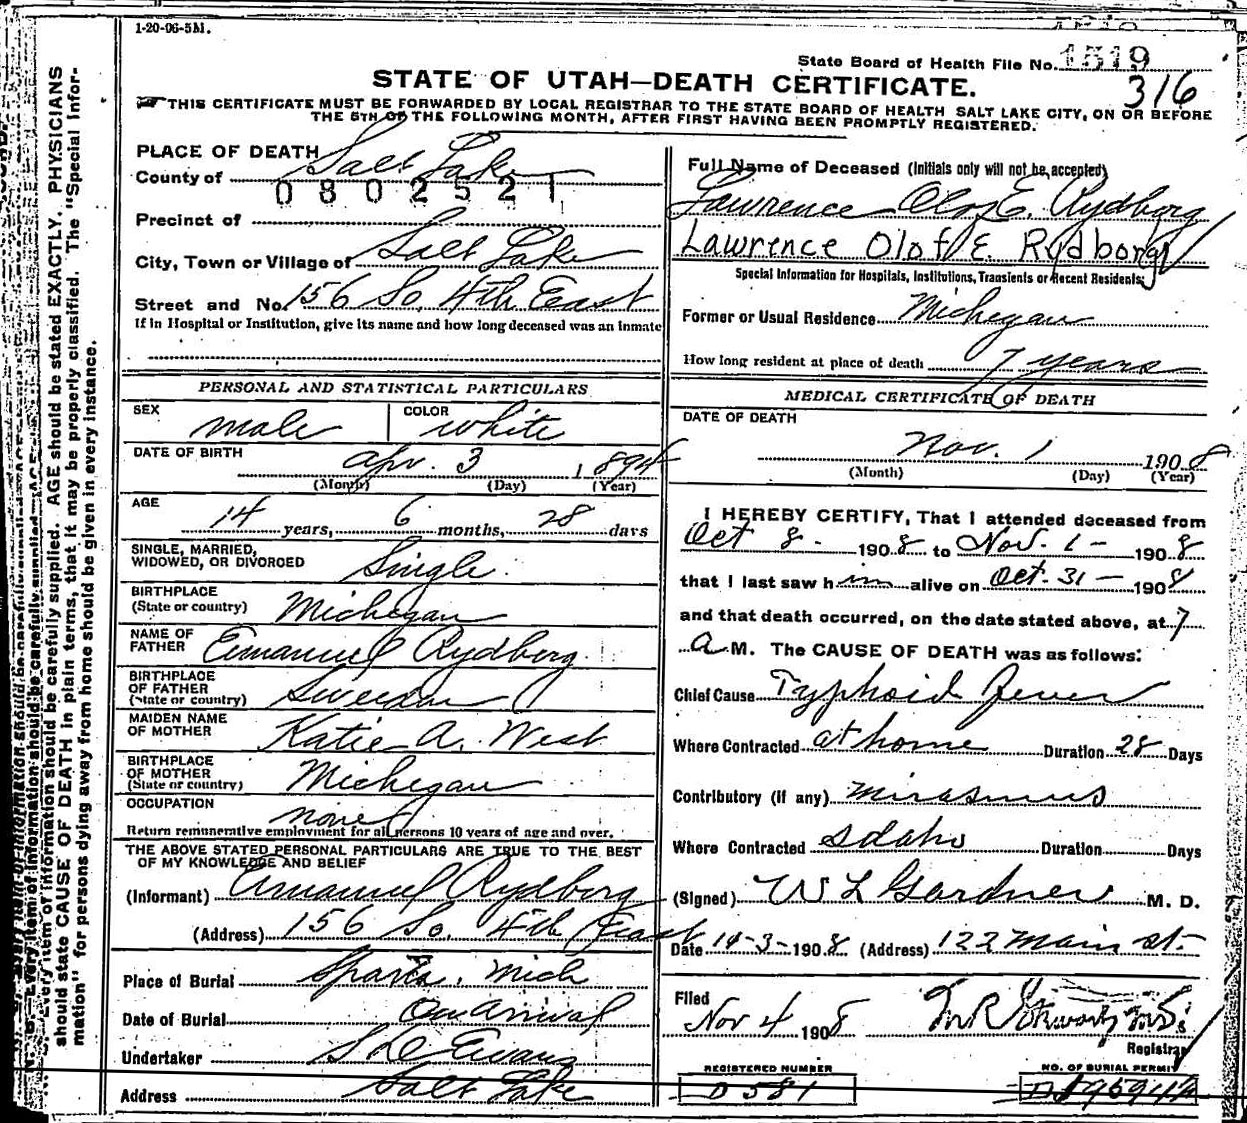 1-20-06-5M.
State Board of Health File No. 1519
STATE OF UTAH—DEATH CERTIFICATE.
316
THIS CERTIFICATE MUST BE FORWARDED BY LOCAL REGISTRAR TO THE STATE BOARD OF HEALTH SALT LAKE CITY, ON OR BEFORE
THE 5TH OF THE FOLLOWING MONTH, AFTER FIRST HAVING BEEN PROMPTLY REGISTERED.
PLACE OF DEATH
County of Salt Lake
0802521
Precinct of
City, Town or Village of Salt Lake
Street and No. 156 So. 4th East
If in Hospital or Institution, give its name and how long deceased was an inmate
PERSONAL AND STATISTICAL PARTICULARS
SEX male COLOR white
DATE OF BIRTH Apr. 3 1894
(Month) (Day) (Year)
AGE
14 years, 6 months, 28 days
SINGLE, MARRIED,
WIDOWED, OR DIVORCED Single
BIRTHPLACE
(State or country) Michegan
NAME OF
FATHER Emanuel Rydberg
BIRTHPLACE
OF FATHER
(State or country) Sweedan
MAIDEN NAME
OF MOTHER Katie A. West
BIRTHPLACE
OF MOTHER
(State or country) Michegan
OCCUPATION none
Return remunerative employment for all persons 10 years of age and over.
THE ABOVE STATED PERSONAL PARTICULARS ARE TRUE TO THE BEST
OF MY KNOWLEDGE AND BELIEF
(Informant) Emanuel Rydberg
(Address) 156 So. 4th East
Place of Burial Sparta, Mich
Date of Burial On arrival
Undertaker Evans
Address Salt Lake
Full Name of Deceased (Initials only will not be accepted)
Lawrence Olof E. Rydberg
Lawrence Olof E. Rydborg
Special Information for Hospitals, Institutions, Transients or Recent Residents:
Former or Usual Residence Michegan
How long resident at place of death 7 years
MEDICAL CERTIFICATE OF DEATH
DATE OF DEATH
Nov. 1 1908
(Month) (Day) (Year)
I HEREBY CERTIFY, That I attended deceased from
Oct 8 - 1908 to Nov. 1 - 1908
that I last saw him alive on Oct. 31 - 1908
and that death occurred, on the date stated above, at 7
A.M. The CAUSE OF DEATH was as follows:
Chief Cause Typhoid fever
Where Contracted at home Duration 28 Days
Contributory (if any) mirasmus
Where Contracted Idaho Duration Days
(Signed) W L Gardner M. D.
Date 14-3-1908 (Address) 122 Main st.
Filed
Nov 4 1908
Registrar
REGISTERED NUMBER
D 581
NO. OF BURIAL PERMIT
should state CAUSE OF DEATH in plain terms, that it may be properly classified. The "Special Infor-
mation" for persons dying away from home should be given in every instance.
Every item of information should be carefully supplied. AGE should be stated EXACTLY. PHYSICIANS